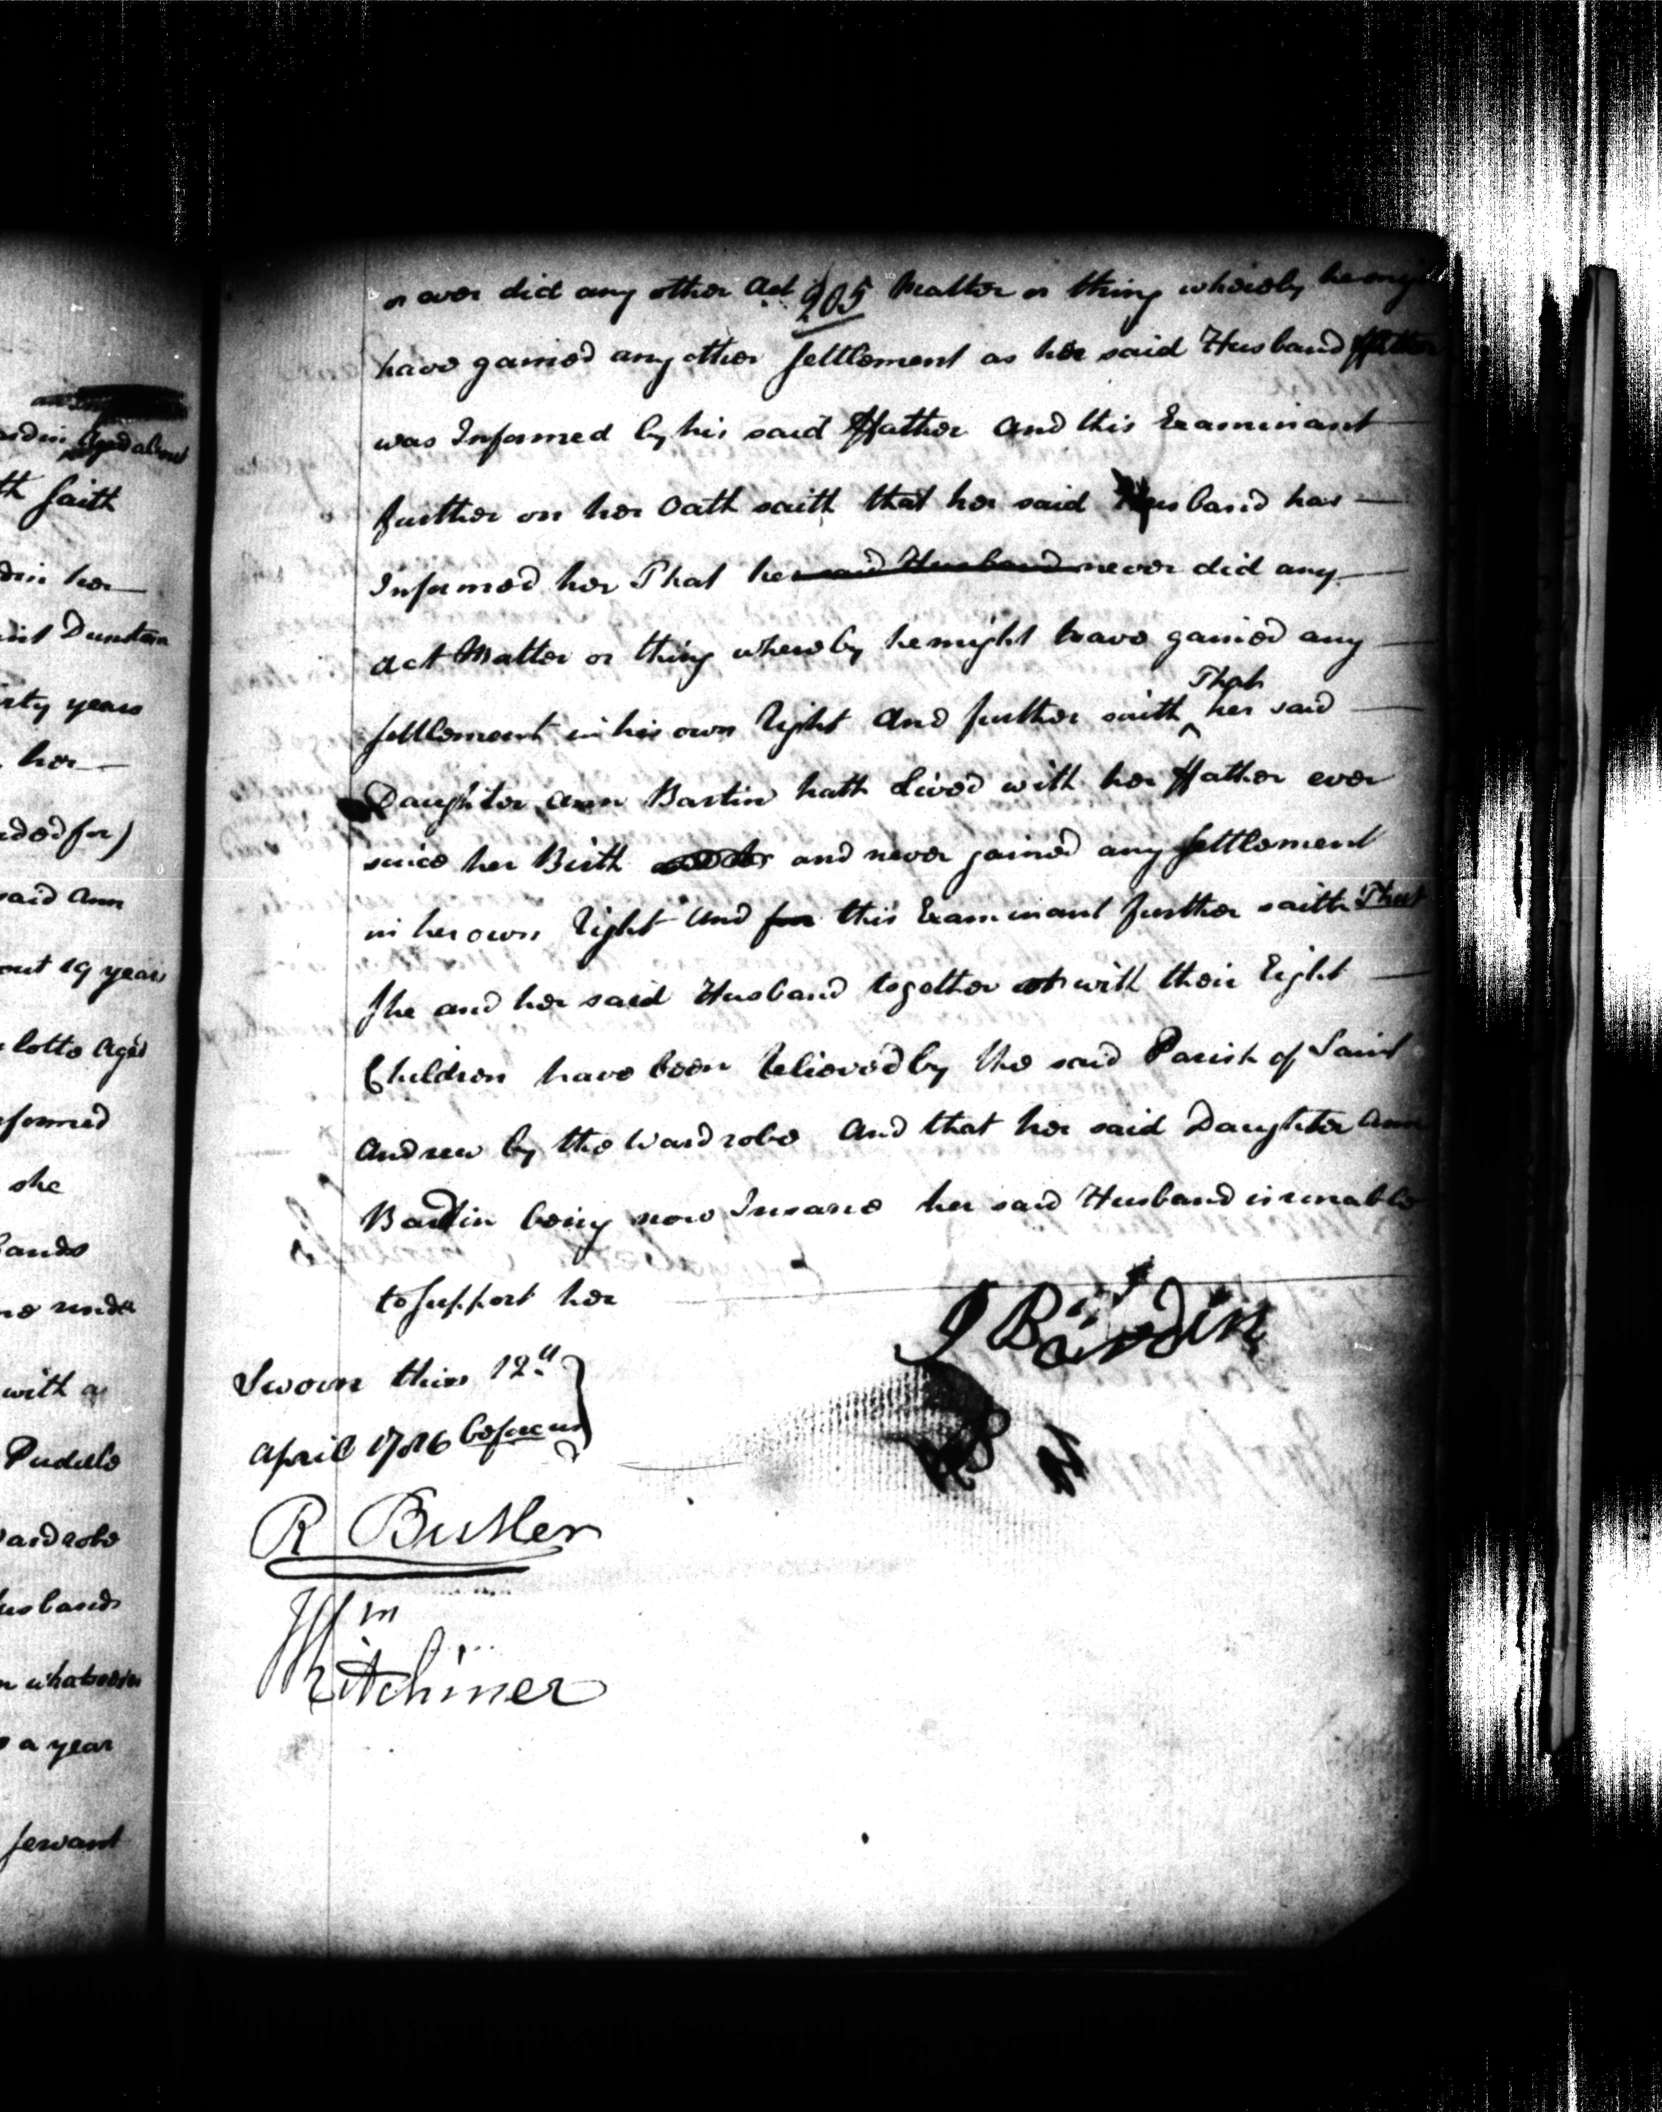 ardin Aged about
th saith
din her
aint Dunstan
irty years
her
ided for)
said Ann
out 19 years
lotte Aged
formed
she
bands
me under
with a
Puddle
Wardrobe
usband
n whatsoever
a year
servant
205
or ever did any other Act Matter or thing whereby he might
have gained any other settlement as her said Husband
was Informed by his said ffather And this Examinant
further on her Oath saith that her said Husband has
Informed her That he said Husband never did any
Act Matter or thing whereby he might have gained any
That
settlement in his own right And further saith her said
Daughter Ann Bardin hath Lived with her ffather ever
since her Birth and never gained any settlement
in her own right And for this Examinant further saith That
she and her said Husband together with their Eight
Children have been relieved by the said Parish of Saint
Andrew by the Wardrobe And that her said Daughter Ann
Bardin being now Insane her said Husband is unable
to support her
J Bardin
Sworn this 12th
April 1786 before us
R Butler
Wm
Kitchiner